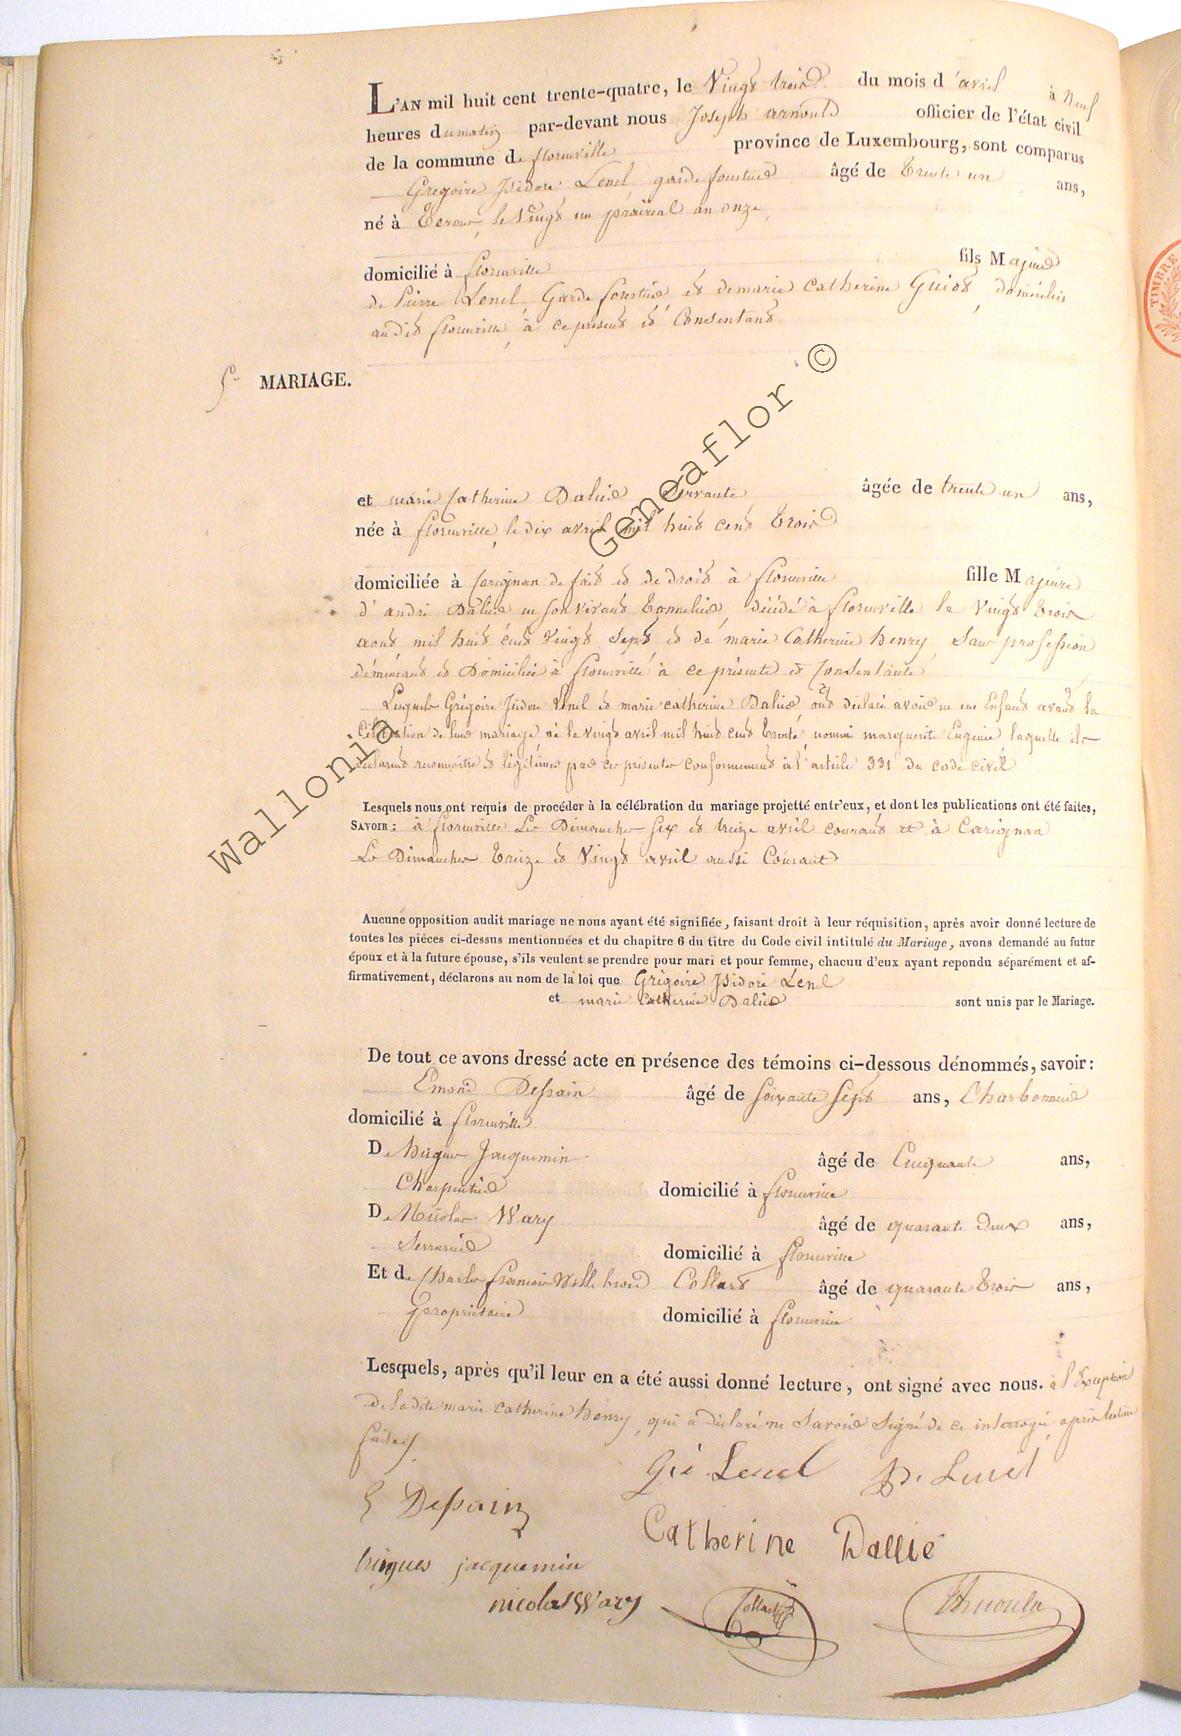 L'AN mil huit cent trente-quatre, le Vingt trois du mois d'avril à neuf
heures du matin par-devant nous Joseph arnould officier de l'état civil
de la commune de florenville province de Luxembourg, sont comparus
Gregoire Isidore Lenel, garde forestier âgé de trente un ans,
né à le vingt un prairial an onze,
domicilié à florenville fils Majeur
de Pierre Lenel, Garde forestier et de marie Catherine Guiot, domiciliés
audit florenville, à ce présents et Consentans
5e MARIAGE.
et marie Catherine Dalié Servante âgée de trente un ans,
née à florenville, le dix avril mil huit cent trois
domiciliée à Carignan de fait et de droit à florenville fille Majeure
d'andré Dalié en son vivant tonnelier, décédé à florenville le vingt trois
aout mil huit cent vingt sept et de marie Catherine henry, Sans profession
demeurant et Domiciliée à florenville à ce présente et Consentante
Lesquels Grégoire Isidore Lenel et marie catherine Dalié, ont déclaré avoir eu un Enfant avant la
Célébration de leur mariage né le vingt avril mil huit cent trente nommé marguerite Eugenie laquelle ils
déclarent reconnoitre et légitimer par ces présentes conformément à l'article 331 du code civil
Lesquels nous ont requis de procéder à la célébration du mariage projetté entr'eux, et dont les publications ont été faites,
SAVOIR: à florenville Les Dimanches Six et treize avril courant et à Carignan
Les Dimanches treize et Vingt avril aussi Courant
Aucune opposition audit mariage ne nous ayant été signifiée, faisant droit à leur réquisition, après avoir donné lecture de
toutes les pièces ci-dessus mentionnées et du chapitre 6 du titre du Code civil intitulé du Mariage, avons demandé au futur
époux et à la future épouse, s'ils veulent se prendre pour mari et pour femme, chacun d'eux ayant repondu séparément et af-
firmativement, déclarons au nom de la loi que Grégoire Isidore Lenel
et marie catherine Dalié sont unis par le Mariage.
De tout ce avons dressé acte en présence des témoins ci-dessous dénommés, savoir:
Emond Dessain âgé de soixante sept ans, Charbonnier
domicilié à florenville
De hugues Jacquemin âgé de Cinquante ans,
Charpentier domicilié à florenville
De Nicolas Wary âgé de quarante deux ans,
Serrurier domicilié à florenville
Et de Charles françois Willebrord Collard âgé de quarante trois ans,
propriétaire domicilié à florenville
Lesquels, après qu'il leur en a été aussi donné lecture, ont signé avec nous. à l'Exception
de ladite marie catherine henry, qui a déclaré ne Savoir Signé de ce interrogé, après lecture
faite
Gré Lenel P. Lenel
E Dessain
Catherine Dallié
hugues jacquemin
nicolas Wary Collard JArnould
TIMBRE
Wallonia Geneaflor ©